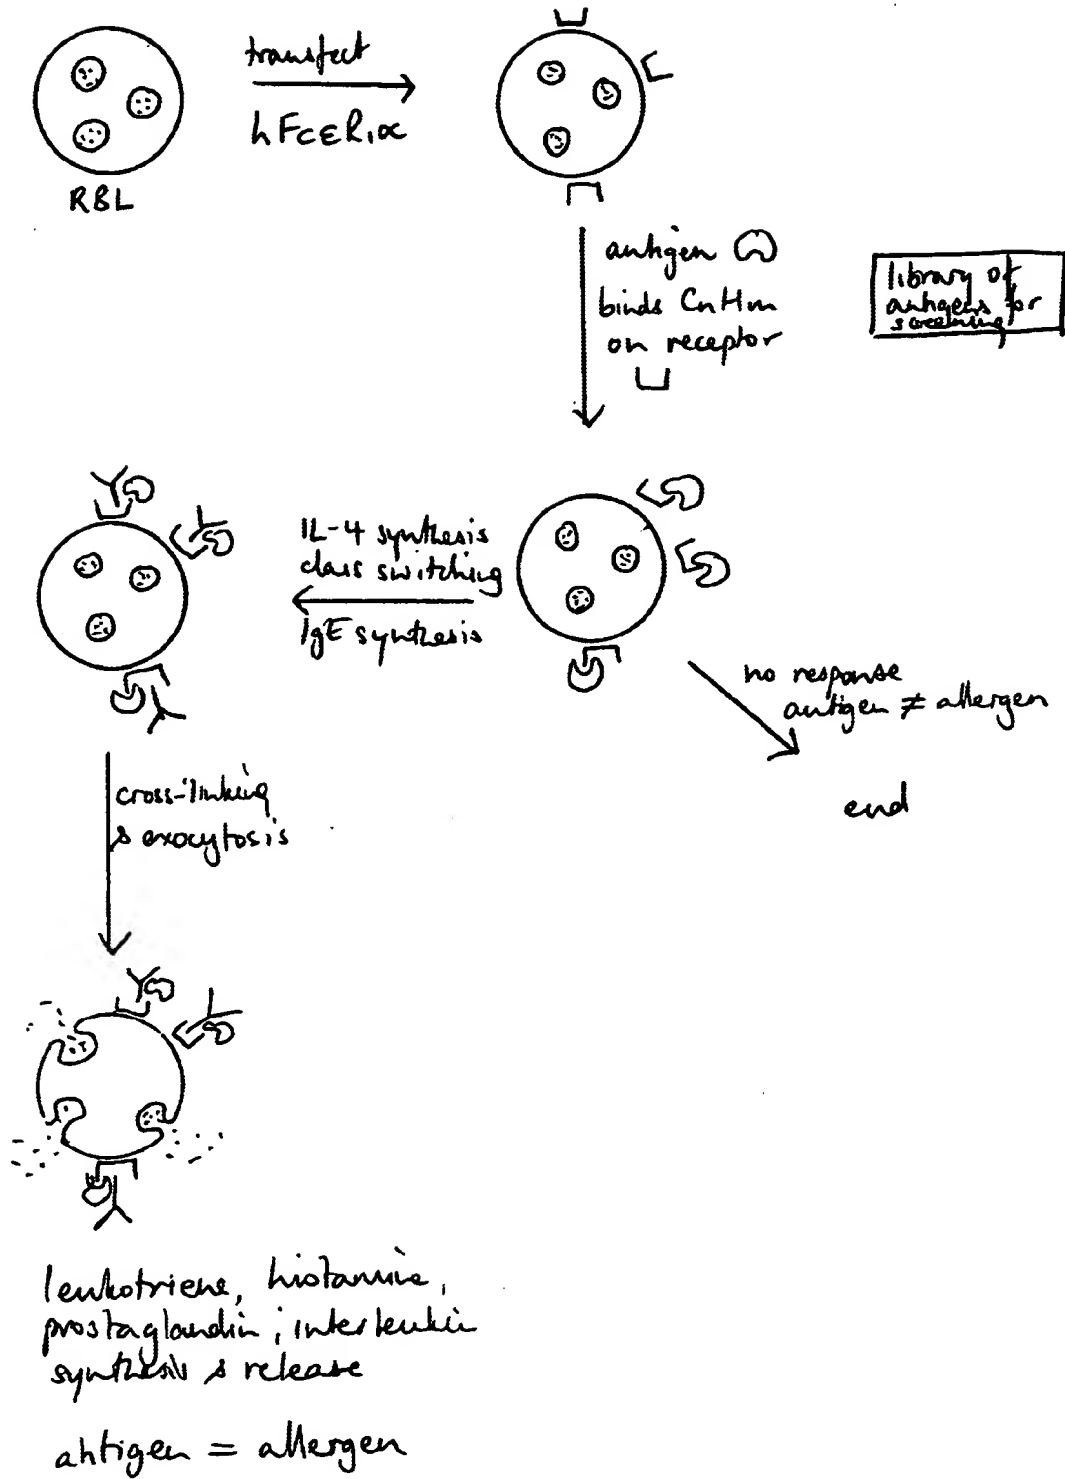 transfect
hFcεR1α
RBL
antigen
binds CnHm
on receptor
library of
antigens for
screening
IL-4 synthesis
class switching
IgE synthesis
no response
antigen ≠ allergen
end
cross-linking
& exocytosis
leukotriene, histamine,
prostaglandin, interleukin
synthesis & release
antigen = allergen